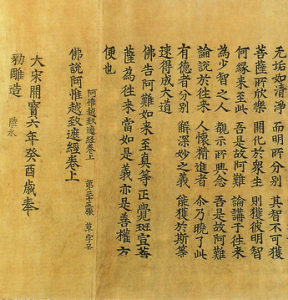 无垢如清淨 而明所分別 其智不可獲
菩薩所欣樂 開化於衆生 則獲彼明智
何緣来至此 吾是故阿難 論講于往来
為少智之人 觀示所興念 吾是故阿難
論說於往来 人懷精進者 令乃曉了此
有德者分別 解深妙之義 能獲於斯等
速得成大道
佛告阿難如来至真等正覺班宣菩
薩為往来當如是義亦是善權方
便也
阿惟越致遮經卷上 草字号
佛說阿惟越致遮經卷上
大宋開寶六年癸酉歲奉
勑雕造 陸永